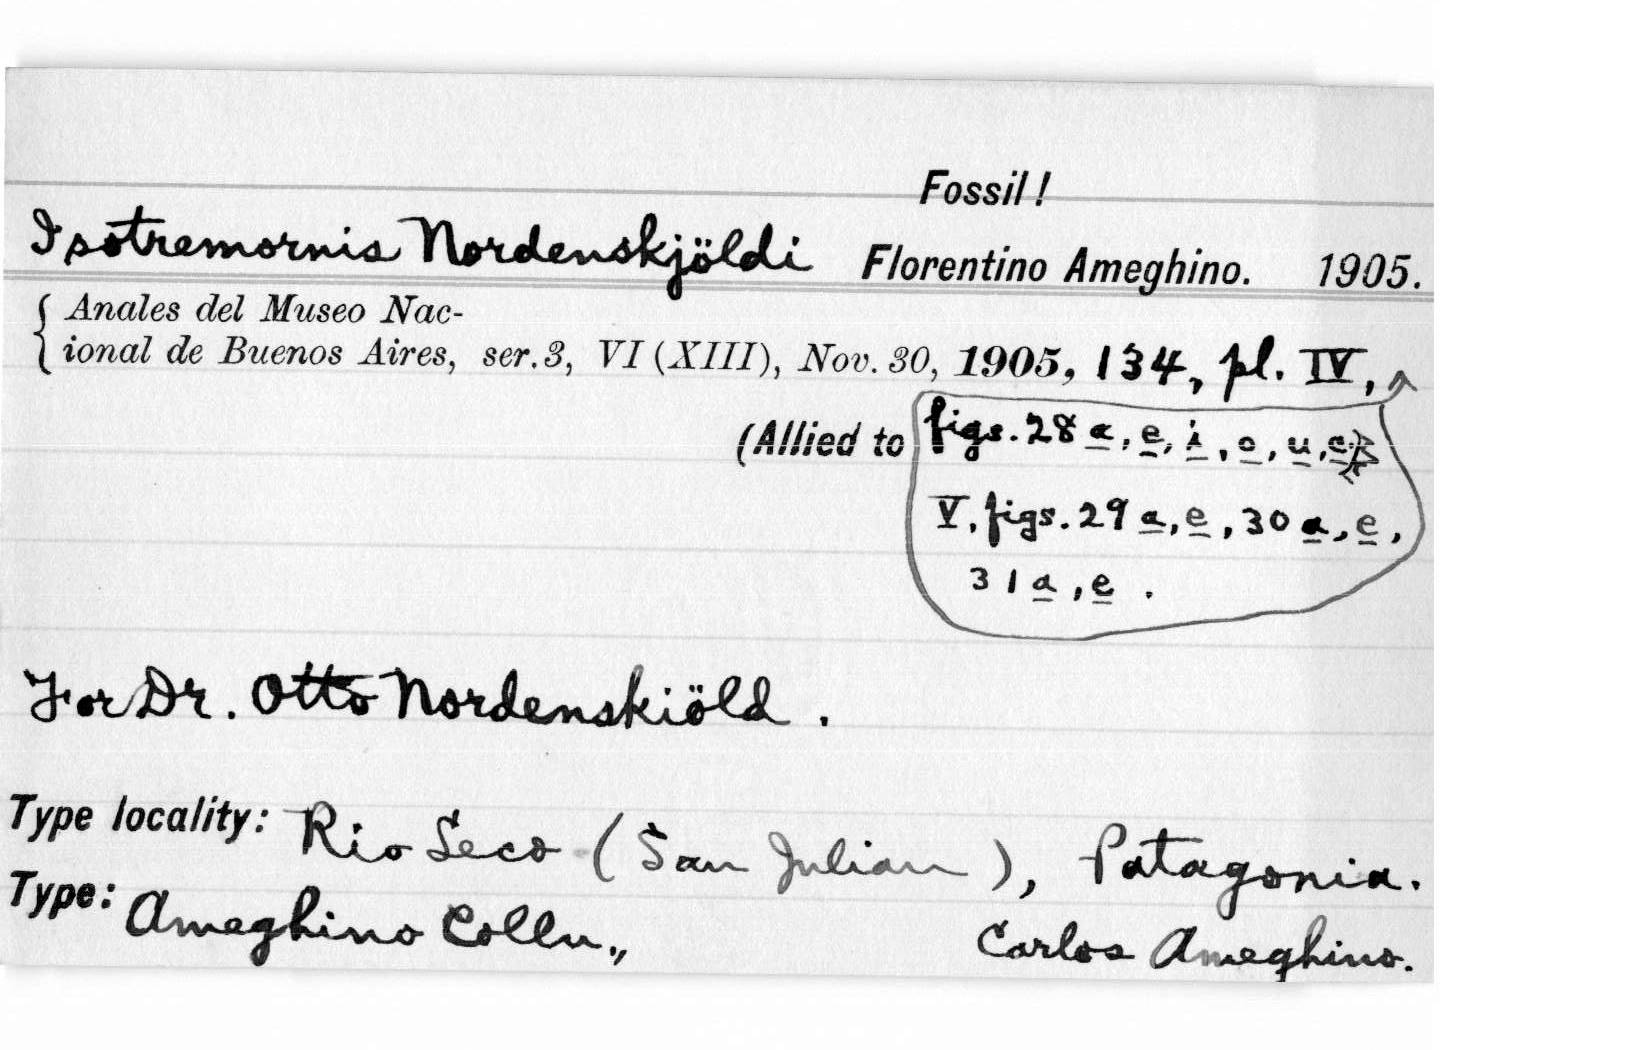 Fossil!
Isotremornis Nordenskjöldi Florentino Ameghino. 1905.
Anales del Museo Nac-
ional de Buenos Aires, ser.3, VI (XIII), Nov. 30, 1905, 134, pl. IV,
(Allied to figs. 28 a, e, i, o, u,
V, figs. 29 a, e, 30 a, e,
31 a, e .
For Dr. Otto Nordenskiöld .
Type locality: Rio Seco (San Julian), Patagonia.
Type: Ameghino Colln., Carlos Ameghino.